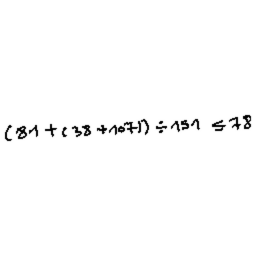 (81+(38+107)) ÷ 151 ≤ 78